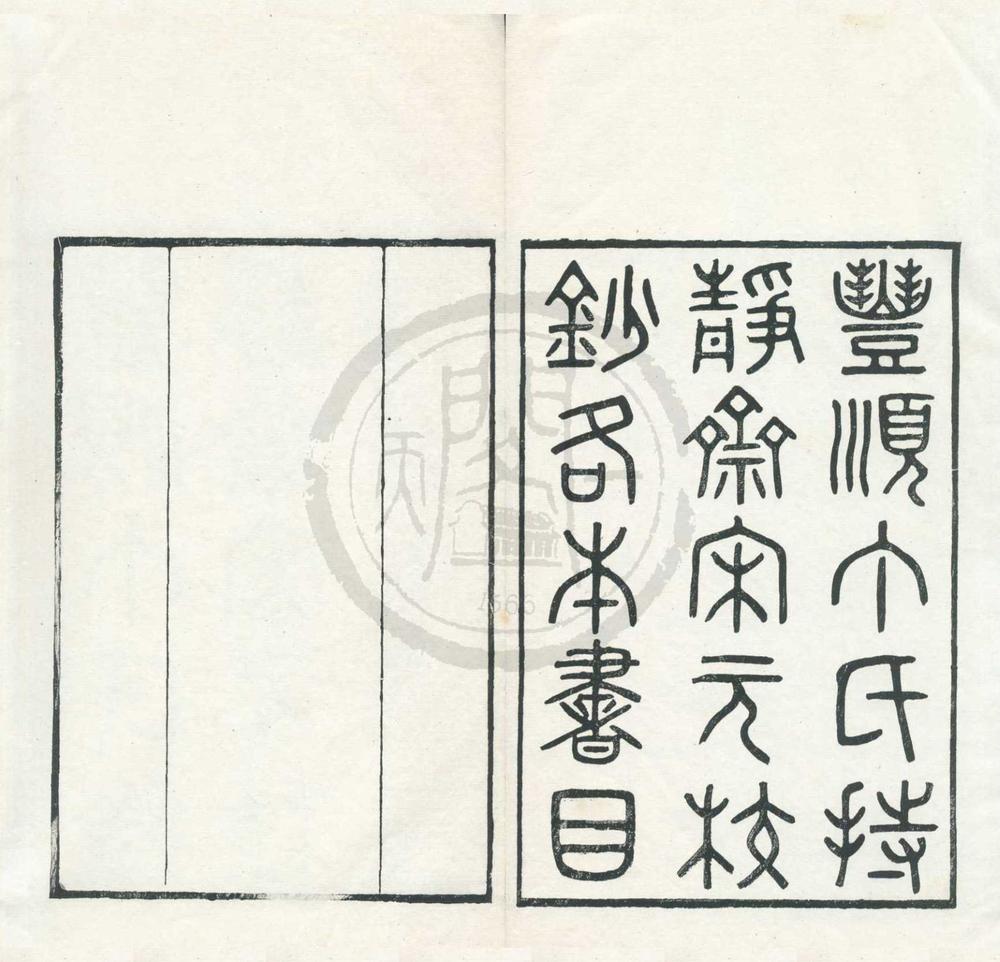 豐順丁氏持
靜齋宋元校
鈔各本書目
天一閣
1566